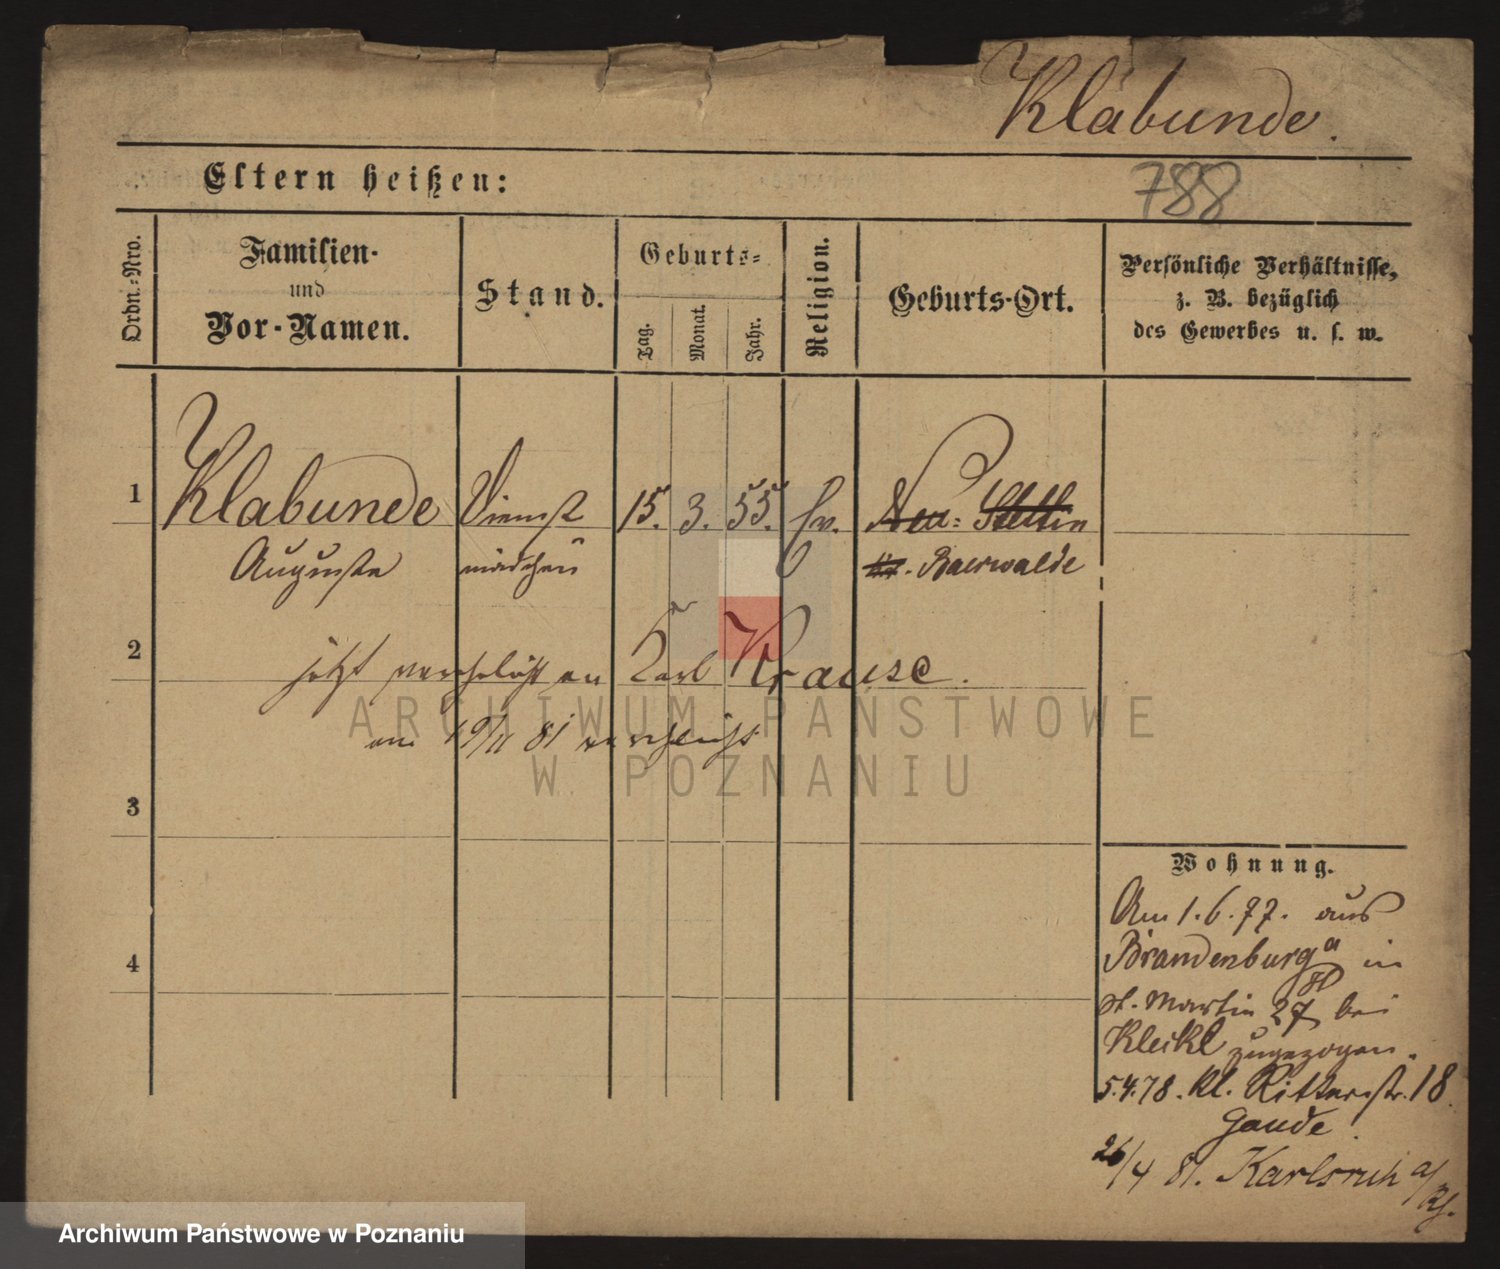 Klabunde.
788
Eltern heißen:
Ordn.-Nro.
Familien-
und
Vor-Namen.
Stand.
Geburts-
Tag.
Monat.
Jahr.
Religion.
Geburts-Ort.
Persönliche Verhältnisse,
z. B. bezüglich
des Gewerbes u. s. w.
1 Klabunde Dienst 15. 3. 55. Ev. Neu-Stettin
Auguste mädchen Baerwalde
2 jetzt verehelicht an Karl Krause.
am 19/11 81 verehelicht
3
4
Wohnung.
Am 1. 6. 77. aus
Brandenburg a/H in
St. Martin 27 bei
Kleikl zugezogen.
5.4.78. Kl. Ritterstr. 18
Gaude.
26/4 81. Karlsruh a/
Rh.
ARCHIWUM PAŃSTWOWE
W POZNANIU
Archiwum Państwowe w Poznaniu